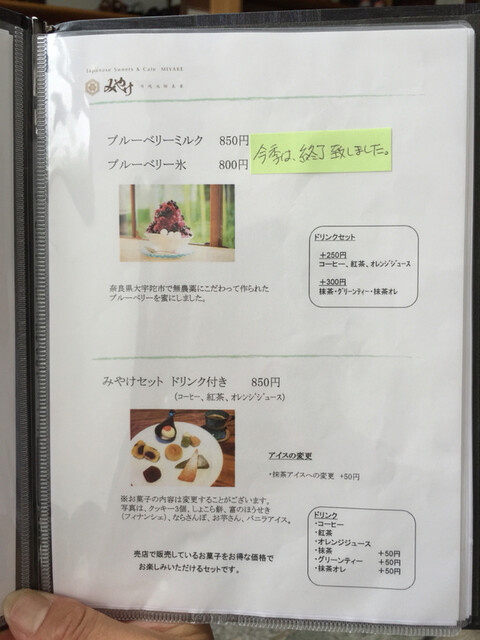 Japanese Sweets & Cafe MIYAKE
みやけ
ブルーベリーミルク 850円
ブルーベリー氷 800円
今季は、終了致しました。
奈良県大宇陀市で無農薬にこだわって作られた
ブルーベリーを蜜にしました。
ドリンクセット
+250円
コーヒー、紅茶、オレンジジュース
+300円
抹茶・グリーンティー・抹茶オレ
みやけセット ドリンク付き 850円
(コーヒー、紅茶、オレンジジュース)
アイスの変更
・抹茶アイスへの変更 +50円
※お菓子の内容は変更することがございます。
写真は、クッキー3個、しょこら餅、富のほうせき
(フィナンシェ)、ならさんぽ、お芋さん、バニラアイス。
売店で販売しているお菓子をお得な価格で
お楽しみいただけるセットです。
ドリンク
・コーヒー
・紅茶
・オレンジジュース
・抹茶 +50円
・グリーンティー +50円
・抹茶オレ +50円